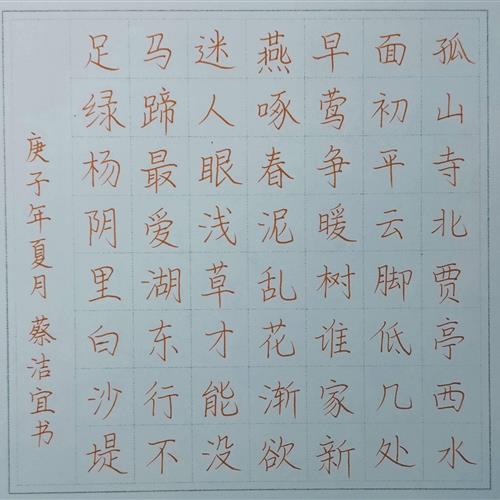 孤山寺北贾亭西水
面初平云脚低几处
早莺争暖树谁家新
燕啄春泥乱花渐欲
迷人眼浅草才能没
马蹄最爱湖东行不
足绿杨阴里白沙堤
庚子年夏月 蔡洁宜书